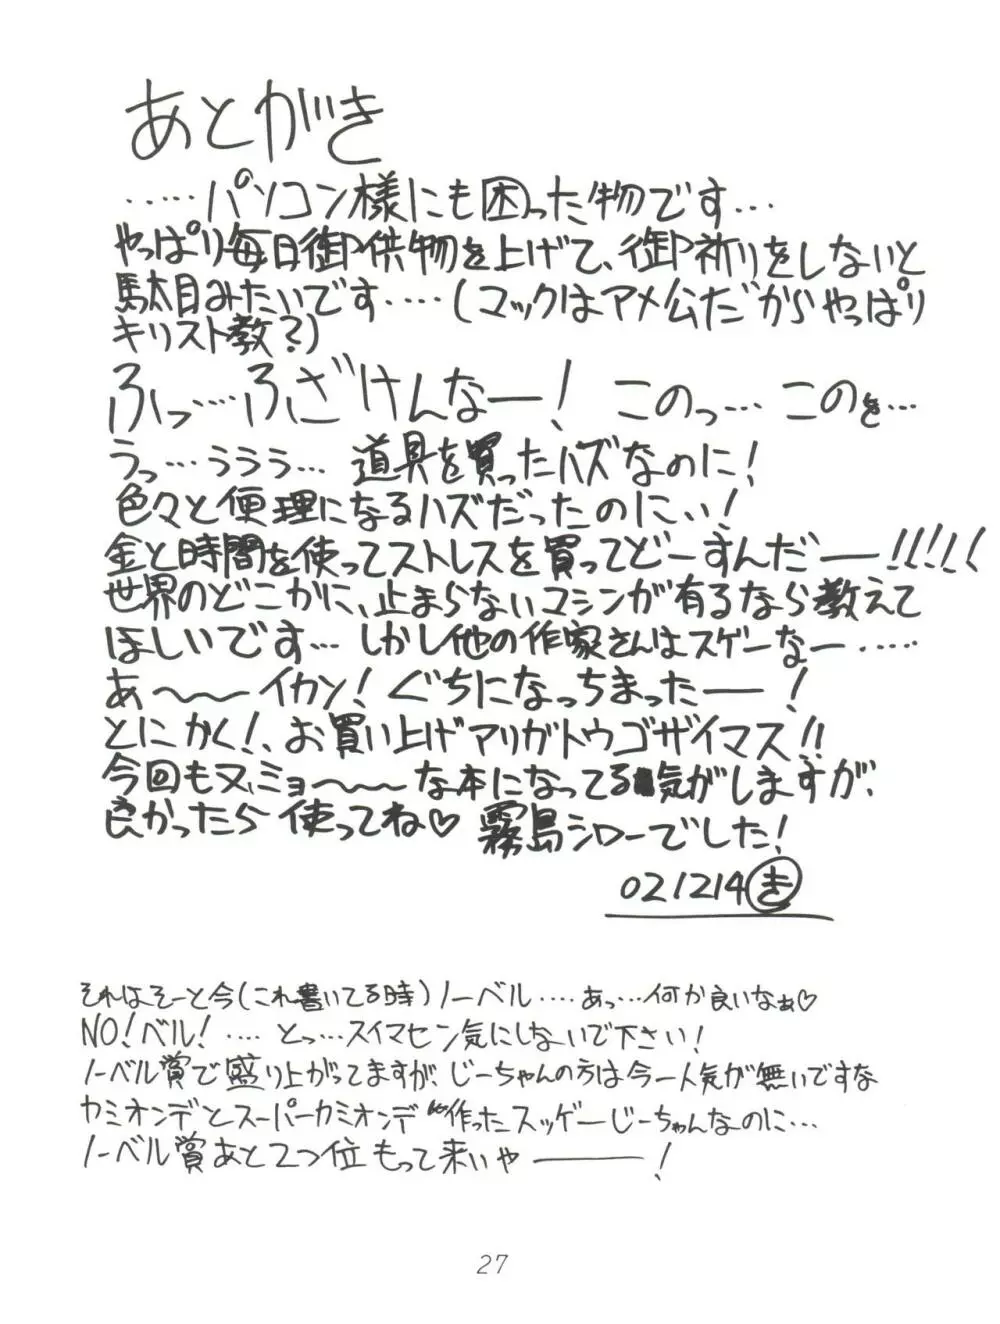 あとがき
‥‥‥パソコン様にも困った物です‥‥
やっぱり毎日御供物を上げて、御祈りをしないと
駄目みたいです‥‥(マックはアメ公だからやっぱり
キリスト教?)
ふっ‥‥ふざけんなー! このっ‥‥ このを‥‥
うっ‥‥ううう‥‥ 道具を買ったハズなのに!
色々と便理になるハズだったのにぃ!
金と時間を使ってストレスを買ってどーすんだー!!!!!
世界のどこかに、止まらないマシンが有るなら教えて
ほしいです‥‥ しかし他の作家さんはスゲーなー‥‥‥
あ〜〜〜イカン! ぐちになっちまったー!
とにかく!、お買い上げアリガトウゴザイマス!!
今回も又、ミョ〜〜〜な本になってる気がしますが、
良かったら使ってね♡ 霧島シローでした!
021214 き
それはそーと今(これ書いてる時)ノーベル‥‥あっ‥‥何か良いなぁ♡
NO!ベル!‥‥ とっ‥‥スイマセン気にしないで下さい!
ノーベル賞で盛り上がってますが、じーちゃんの方は今一人気が無いですな
カミオンデとスーパーカミオンデ作ったスッゲーじーちゃんなのに‥‥
ノーベル賞あと2つ位もって来いやー!
27